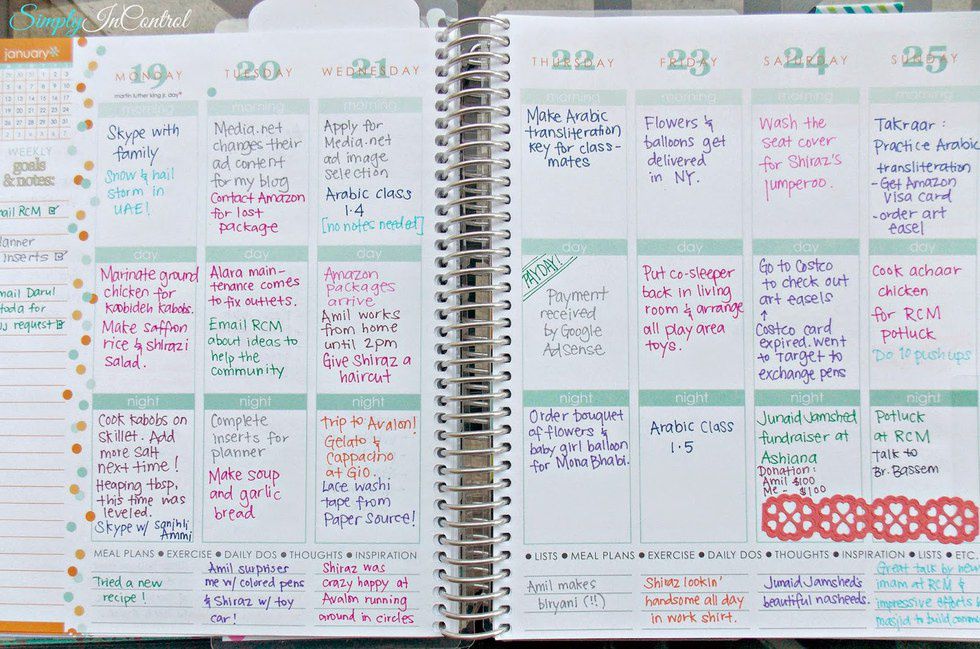 Simply InControl
january
WEEKLY
goals
& notes:
ail RCM
lanner
inserts
mail Daru!
request
MONDAY
19
martin luther king jr. day*
morning
Skype with
family
Snow & hail
storm in
UAE!
day
Marinate ground
chicken for
koobideh kabobs.
Make saffron
rice & shirazi
salad.
night
Cook kabobs on
skillet. Add
more salt
next time!
Heaping tbsp,
this time was
leveled.
Skype w/
Ammi
TUESDAY
20
morning
Media.net
changes their
ad content
for my blog
Contact Amazon
for lost
package
day
Alara main-
tenance comes
to fix outlets.
Email RCM
about ideas to
help the
community
night
Complete
inserts for
planner
Make soup
and garlic
bread
WEDNESDAY
21
morning
Apply for
Media.net
ad image
selection
Arabic class
1.4
[no notes needed]
day
Amazon
packages
arrive
Amil works
from home
until 2pm
Give Shiraz a
haircut
night
trip to Avalon!
Gelato &
Cappacino
at Gio.
Lace washi
tape from
Paper Source!
MEAL PLANS • EXERCISE • DAILY DOS • THOUGHTS • INSPIRATION
Tried a new
recipe!
Amil surprises
me w/ colored pens
& Shiraz w/ toy
car!
Shiraz was
crazy happy at
Avalon running
around in circles
THURSDAY
22
morning
Make Arabic
transliteration
key for class-
mates
day
PAYDAY!
Payment
received
by Google
AdSense
night
Order bouquet
of flowers &
baby girl balloon
for Mona Bhabi.
FRIDAY
23
morning
Flowers &
balloons get
delivered
in NY.
day
Put co-sleeper
back in living
room & arrange
all play area
toys.
night
Arabic Class
1.5
SATURDAY
24
morning
Wash the
seat cover
for Shiraz's
jumperoo.
day
Go to Costco
to check out
art easels
↑
Costco card
expired. Went
to Target to
exchange pens
night
Junaid Jamshed
fundraiser at
Ashiana
Donation:
Amil $100
Me - $100
SUNDAY
25
morning
Takraar:
Practice Arabic
transliteration
- Get Amazon
Visa card
- order art
easel
day
Cook achaar
chicken
for RCM
potluck
Do 10 push ups
night
Potluck
at RCM
talk to
Br. Bassem
• LISTS • MEAL PLANS • EXERCISE • DAILY DOS • THOUGHTS • INSPIRATION • LISTS • ETC.
Amil makes
biryani (!!)
Shiraz lookin'
handsome all day
in work shirt.
Junaid Jamshed's
beautiful nasheeds.
Great talk by new
imam at RCM &
impressive efforts
masjid to build